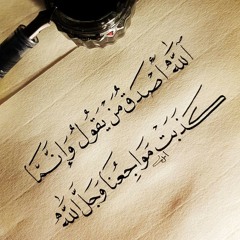 اللهُ أَصْدَقُ مَنْ يَقُولُ وَإِنَّمَا
كَذَبَتْ مَوَاجِعُنَا وَجَلَّ اللهُ